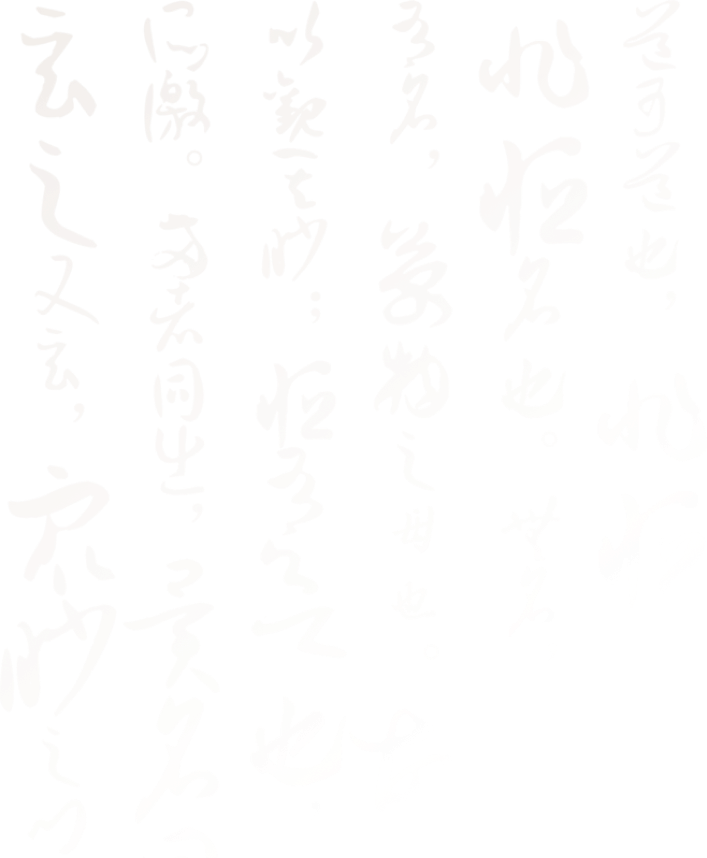 道可道也,非
非恒名也。無
有名,萬物之母也
以觀其眇;恒有欲也
所徼。两者同出,異名
玄之又玄,衆眇之门